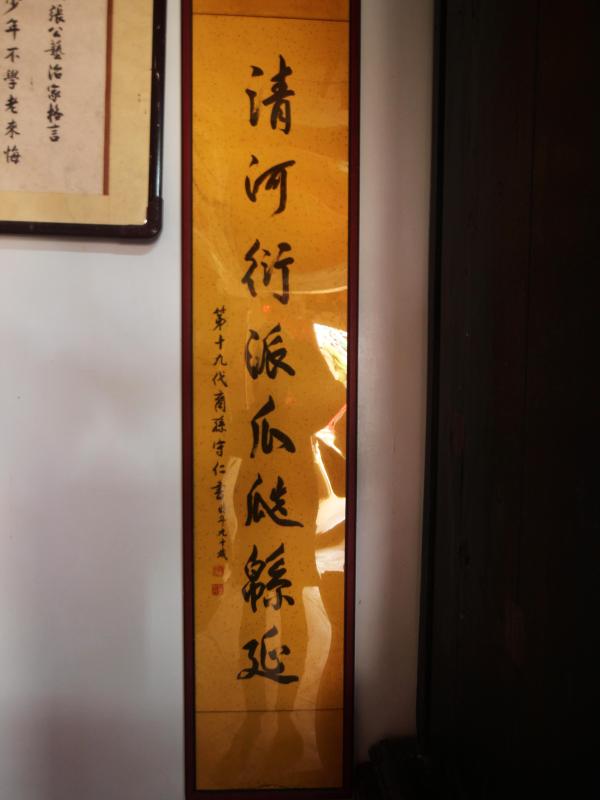 張公藝治家格言
少年不學老來悔
清河衍派瓜瓞緜延
第十九代裔孫守仁書時年九十歲